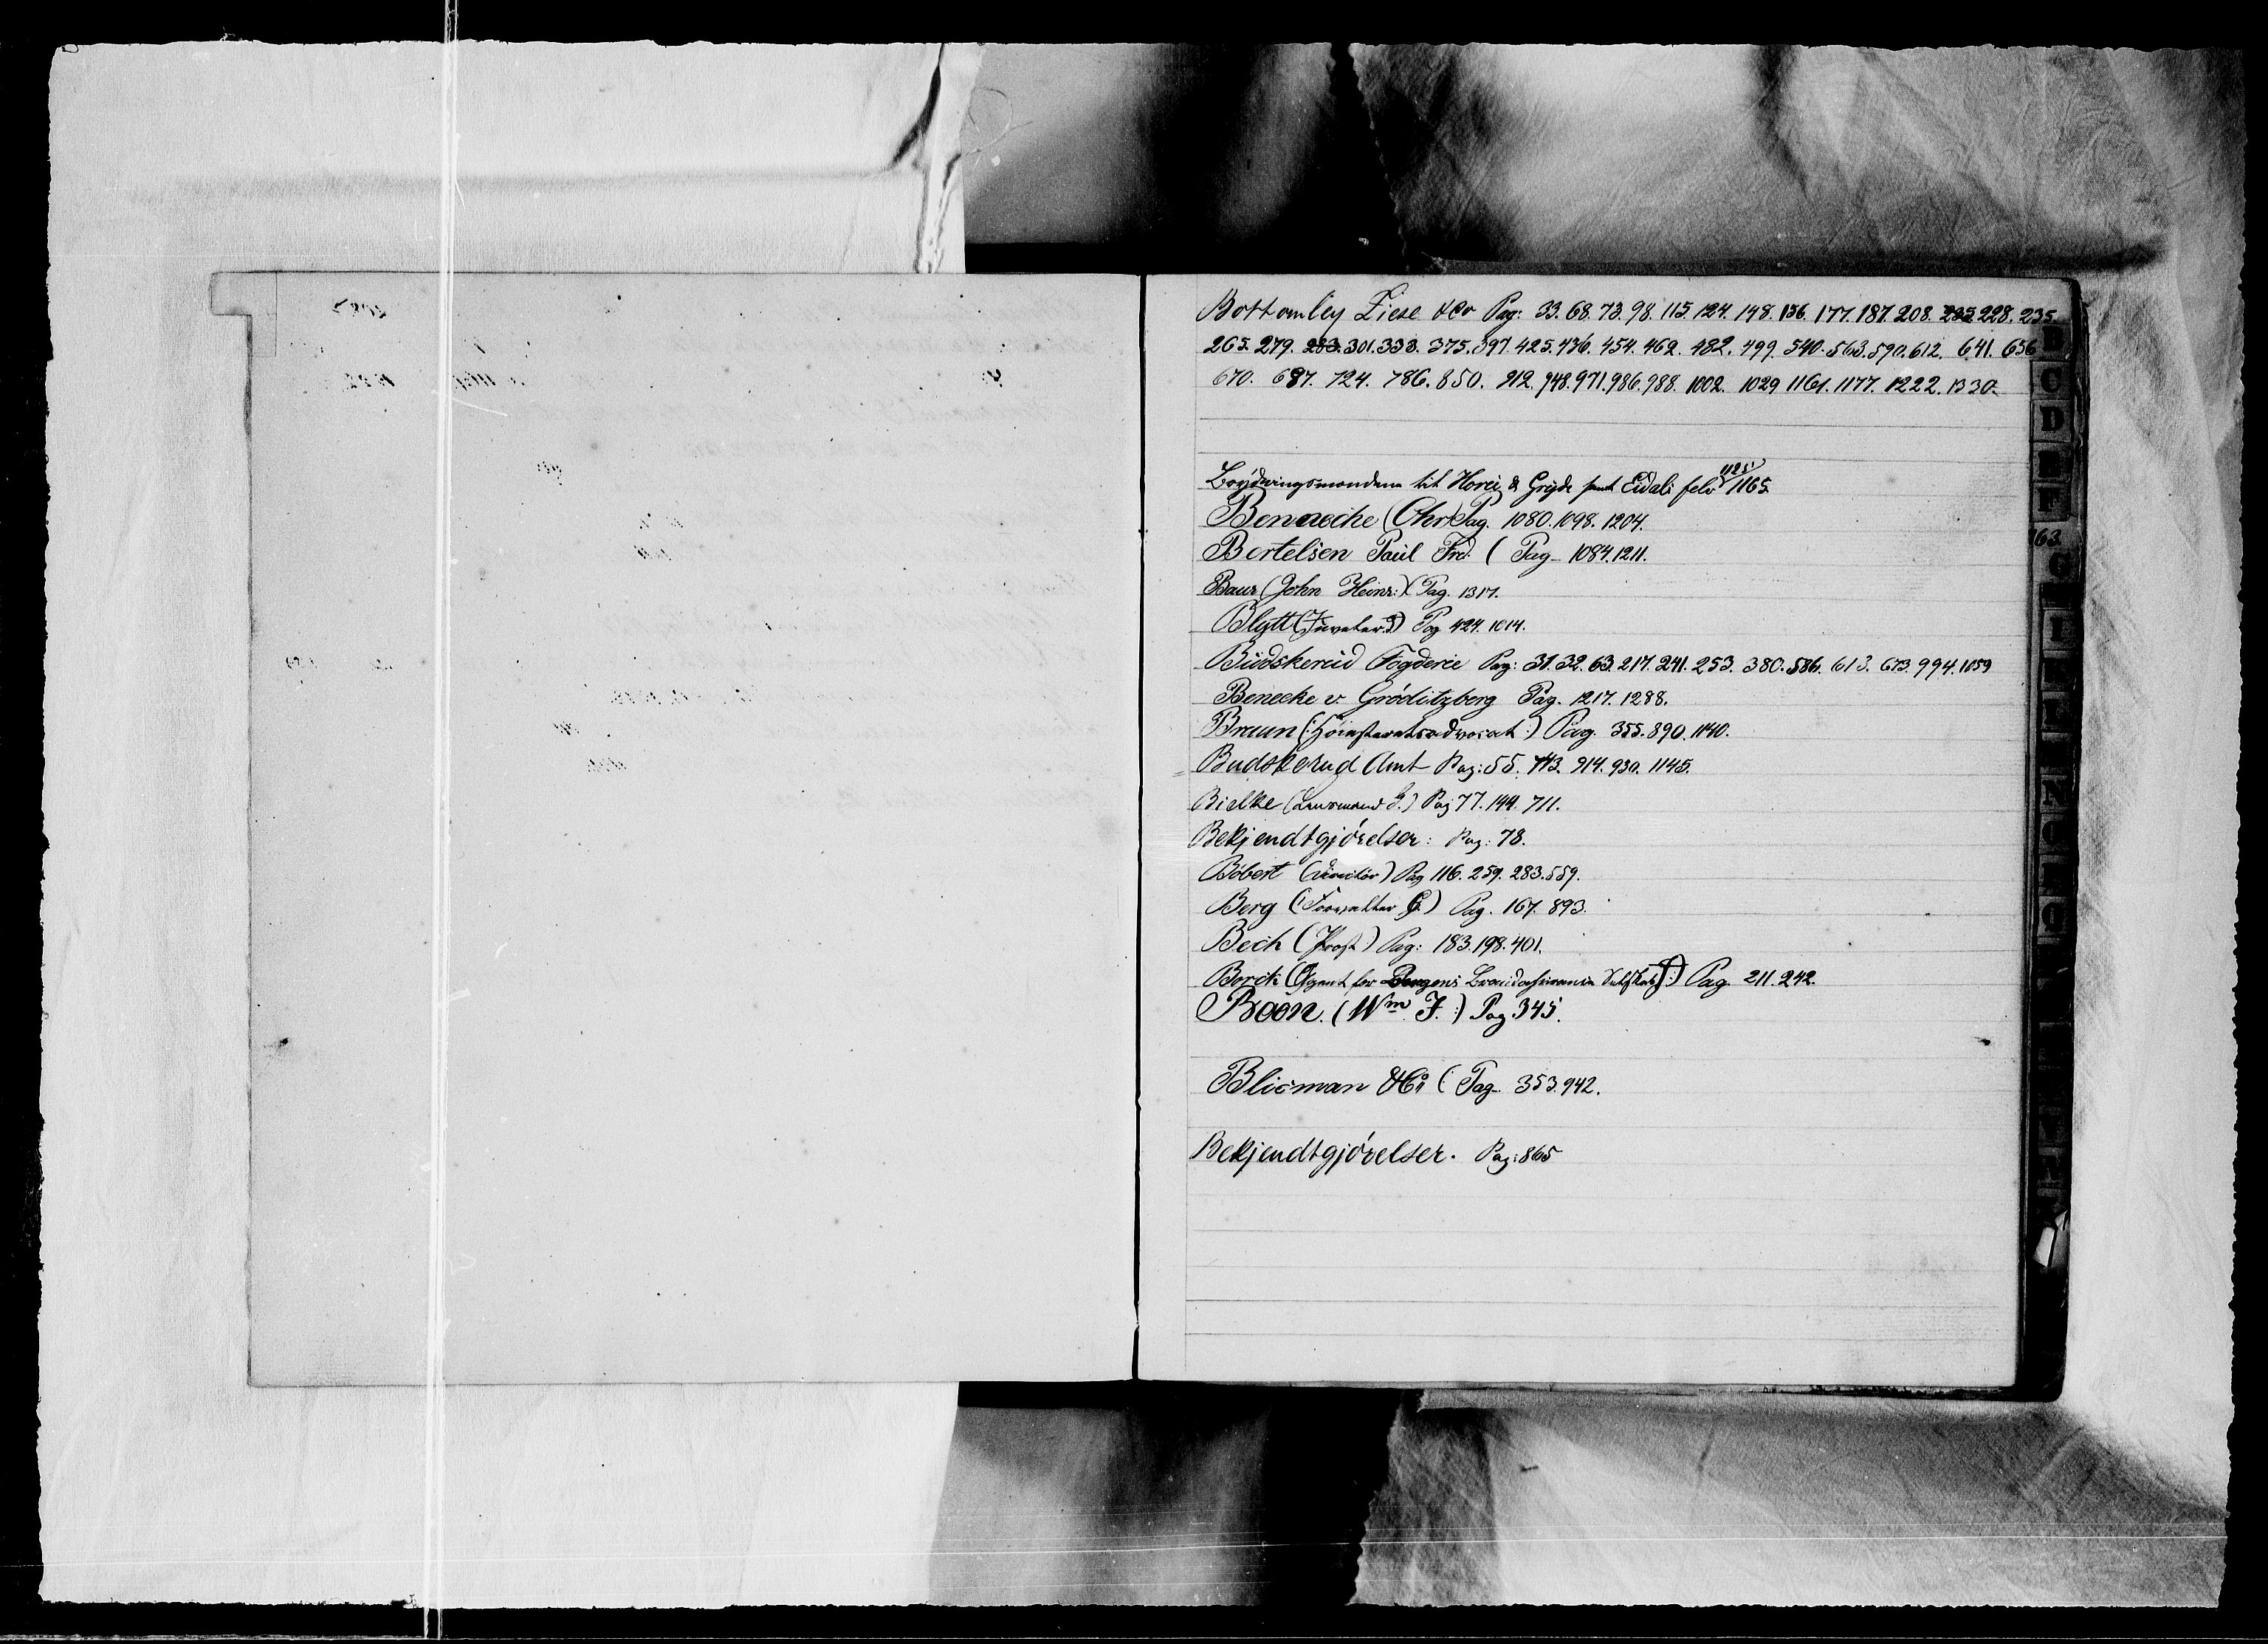 Bottomley Ziese & Co Pag: 33. 68. 73. 98. 115. 124. 148. 156. 177. 187. 208. 228. 235.
265. 279. 283. 301. 333. 375. 397. 425. 436. 454. 462. 482. 499. 540. 563. 590. 612. 641. 656
670. 687. 724. 786. 850. 912. 948. 971. 986. 988. 1002. 1029 1161. 1177. 1222. 1330.
1125
til & Gryde samt Eidals 1165
Bennecke (Chr) Pag. 1080. 1098. 1204.
163.
Bertelsen Paul Frd. ( Pag. 1084. 1211.
Baur (John Heinr:) (Pag. 1317.
Blytt ( ) Pag 424. 1014.
Büdskerüd Fogderie Pag: 31. 32. 63. 217. 241. 253. 380. 586. 613. 673. 994. 1059
Benecke v. Gröditzberg Pag. 1217. 1288.
Bruun (: Höiesteretsadvocat :) Pag. 355. 890. 1140.
Budskerud Amt Pag: 55. 743. 914. 930. 1145.
Bielke (Lensmand G.) Pag 77. 144. 711.
Bekjendtgjörelser: Pag: 78.
Böbert (Directör) Pag 116. 259. 283. 559.
Berg (Forvalter G.) Pag. 167. 893.
Bech (Prost) Pag: 183. 198. 401.
Borck (Agent for Bergens Pag. 211. 242.
Boon. (Wm J. :) Pag 345.
Blicman & Co ( Pag. 353. 942.
Bekjendtgjörelser. Pag: 865